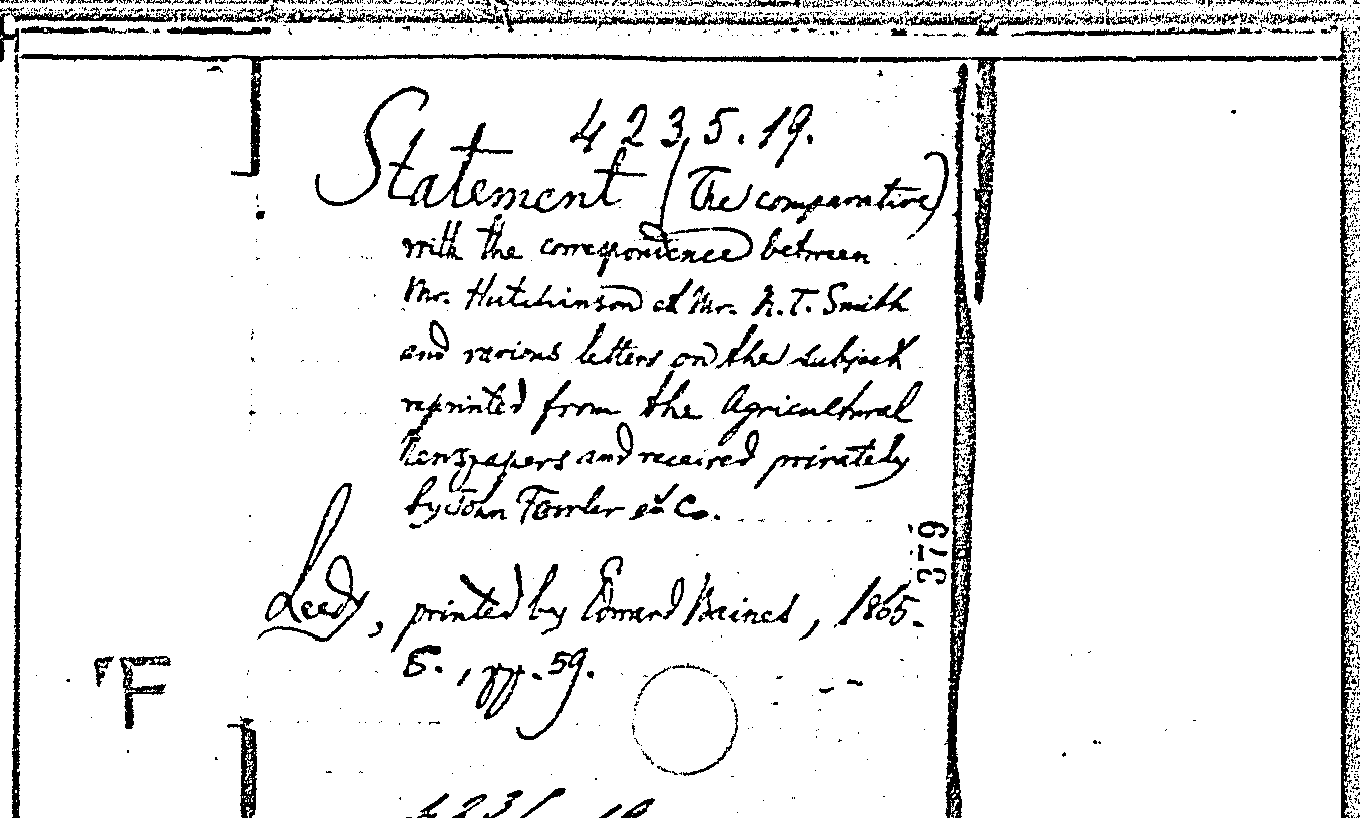 4235.19.
Statement (The comparative)
with the correspondence between
Mr. Hutchinson et Mr. R.T. Smith
and various letters on the subject
reprinted from the Agricultural
Newspapers and received privately
by John Fowler et Co.
379
Leeds, printed by Edward Baines, 1865.
8., pp. 59.
F
4235.19